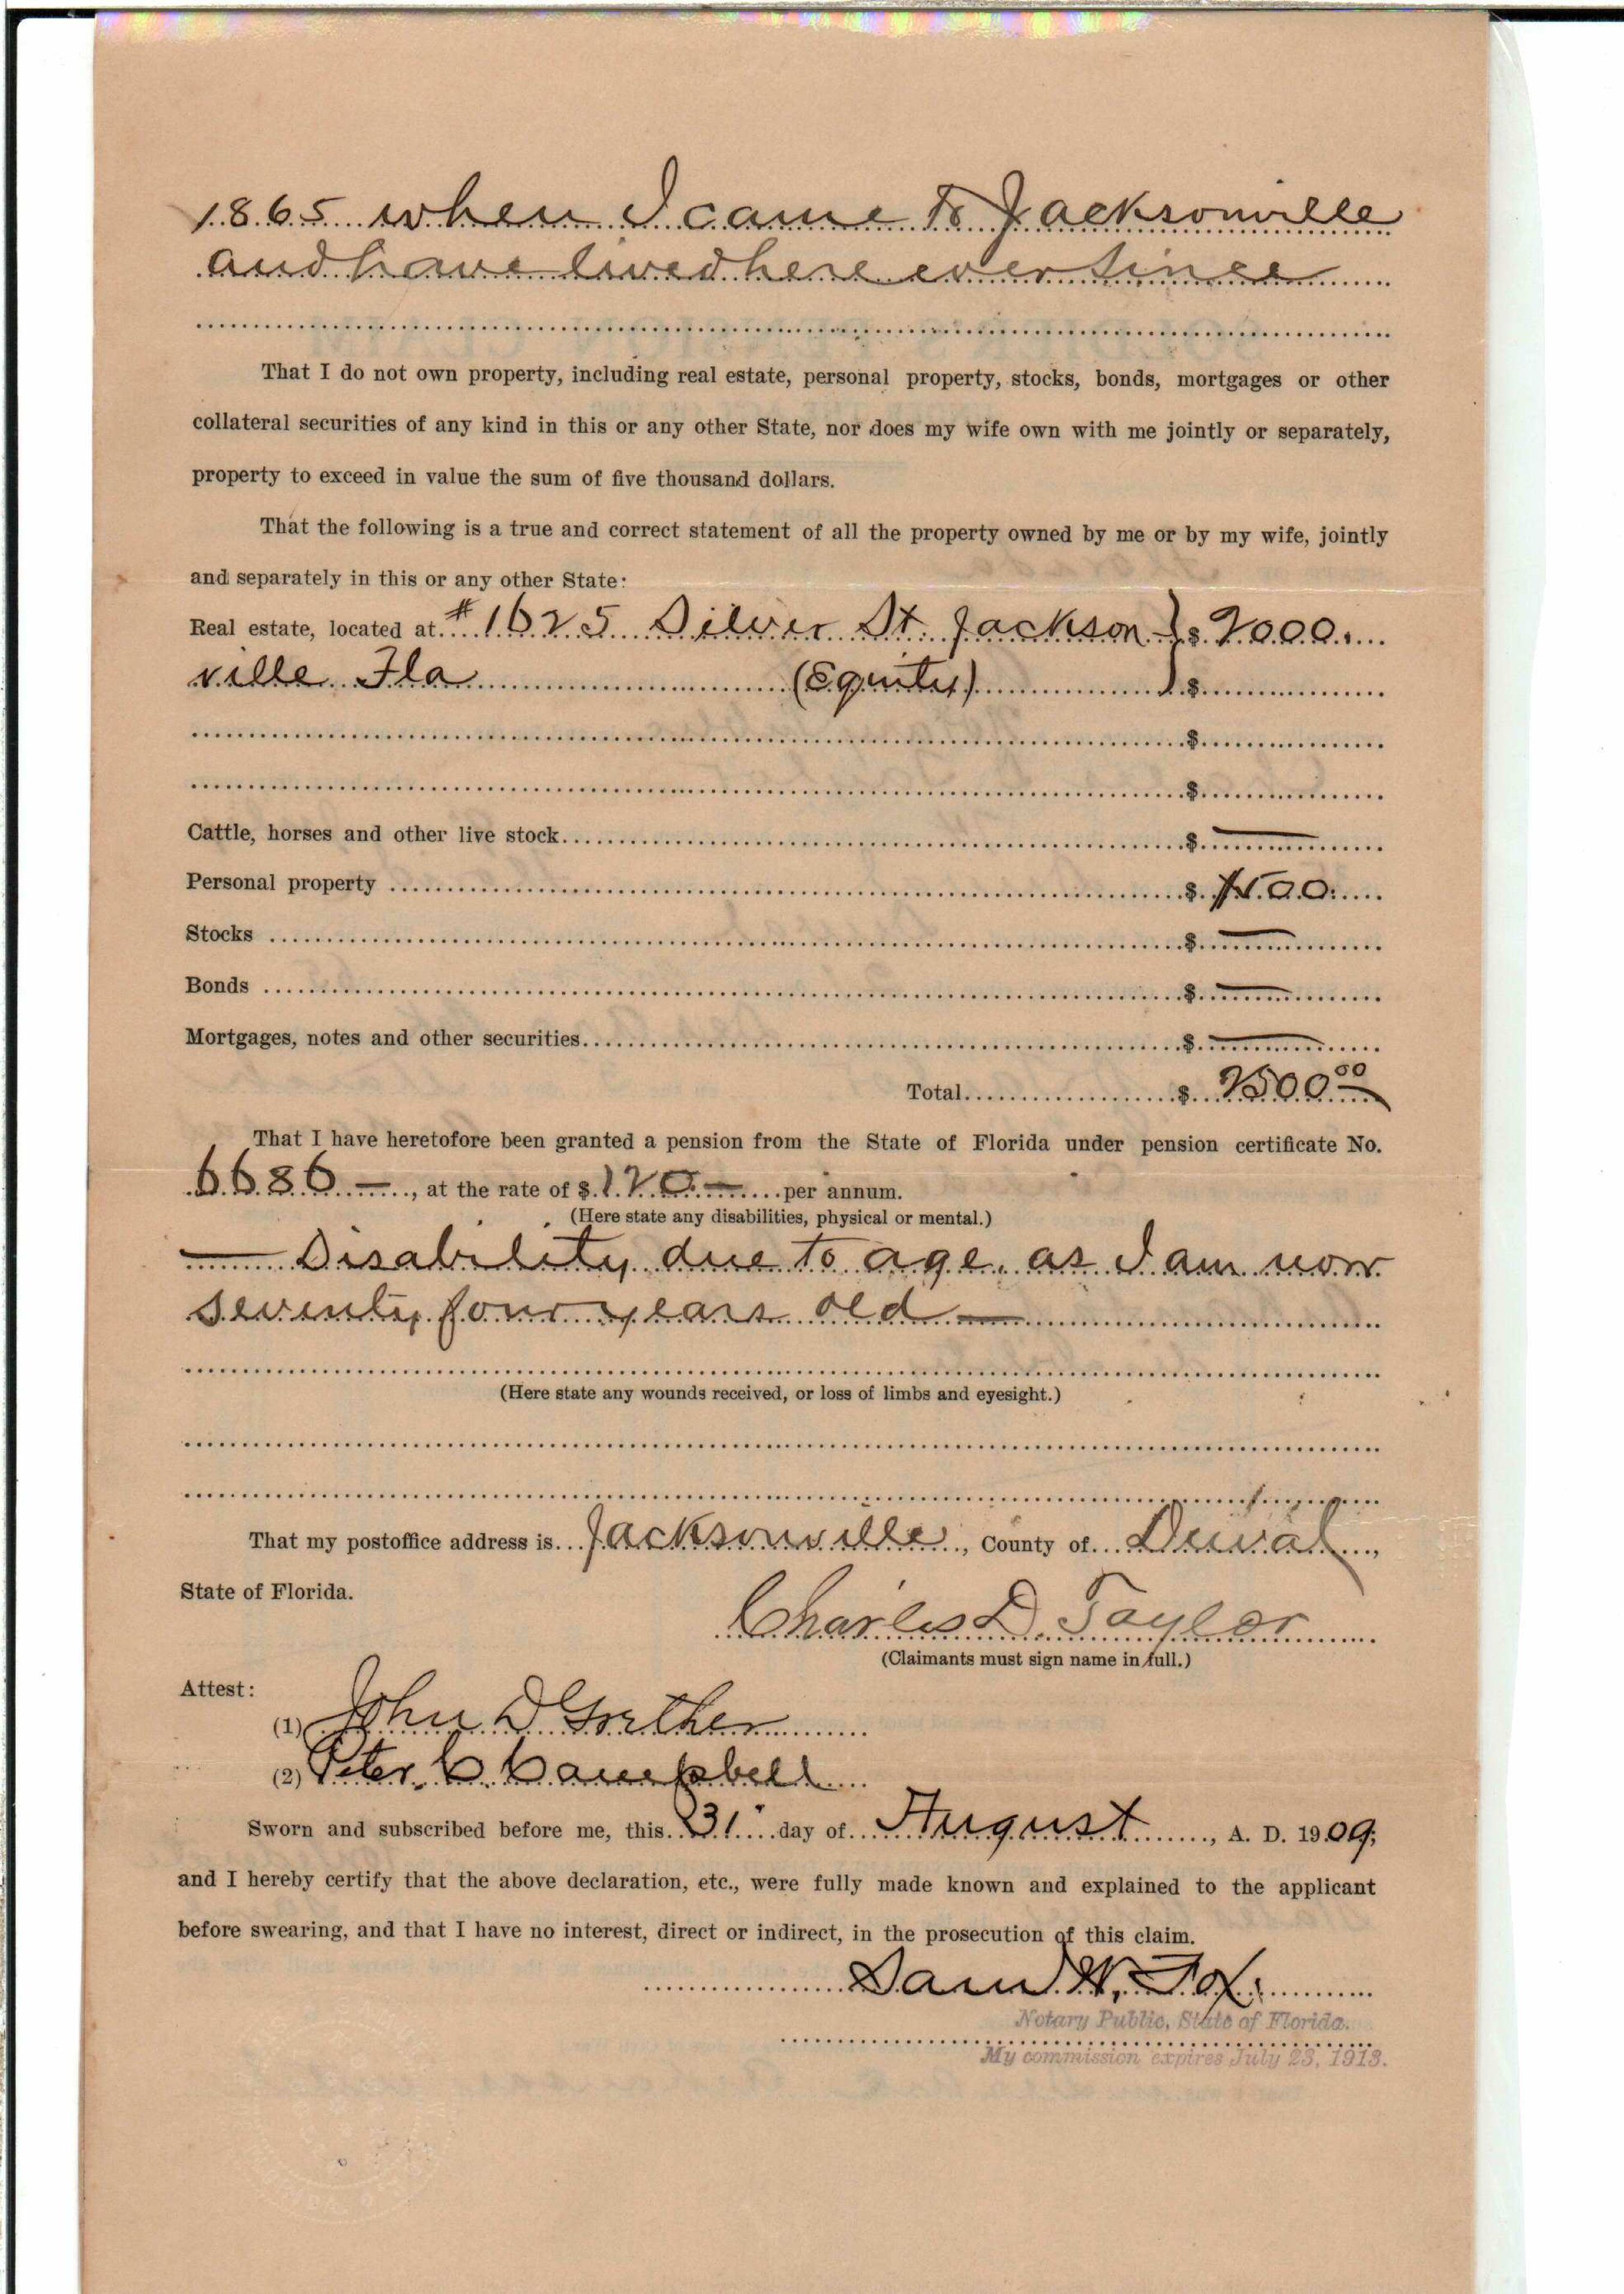 1865 when I came to Jacksonville
and have lived here ever since
That I do not own property, including real estate, personal property, stocks, bonds, mortgages or other
collateral securities of any kind in this or any other State, nor does my wife own with me jointly or separately,
property to exceed in value the sum of five thousand dollars.
That the following is a true and correct statement of all the property owned by me or by my wife, jointly
and separately in this or any other State:
Real estate, located at #1625 Silver St. Jackson } $ 2000.
ville Fla (Equity) } $
$
$
Cattle, horses and other live stock $ —
Personal property $ 500.
Stocks $ —
Bonds $ —
Mortgages, notes and other securities $ —
Total $ 2500 00
That I have heretofore been granted a pension from the State of Florida under pension certificate No.
6686 —, at the rate of $ 120 — per annum.
(Here state any disabilities, physical or mental.)
— Disability due to age, as I am now
seventy four years old —
(Here state any wounds received, or loss of limbs and eyesight.)
That my postoffice address is Jacksonville, County of Duval,
State of Florida.
Charles D. Taylor
(Claimants must sign name in full.)
Attest:
(1) John D Grether
(2) Peter C Campbell
Sworn and subscribed before me, this 31" day of August, A. D. 1909;
and I hereby certify that the above declaration, etc., were fully made known and explained to the applicant
before swearing, and that I have no interest, direct or indirect, in the prosecution of this claim.
Saml W. Fox.
Notary Public, State of Florida.
My commission expires July 23, 1913.